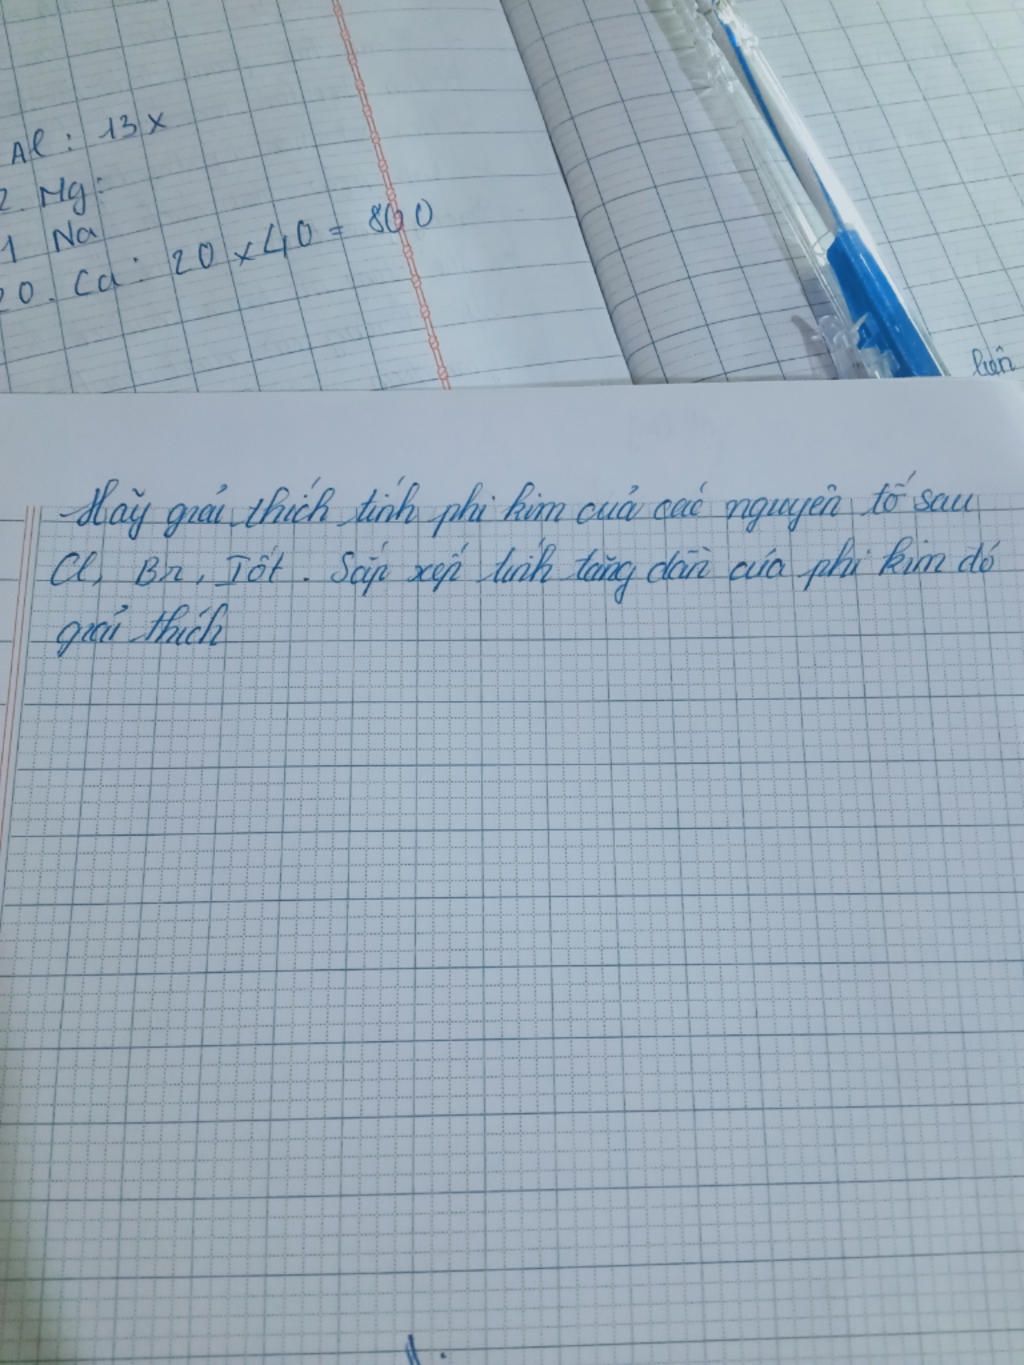 Al : 13 x
2. Mg:
1 Na
20. Ca : 20 x 40 = 800
liên
Hãy giải thích tính phi kim của các nguyên tố sau
Cl, Br, Iốt. Sắp xếp tính tăng dần của phi kim đó
giải thích